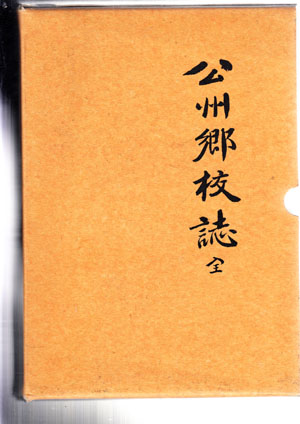 公州鄕校誌 全